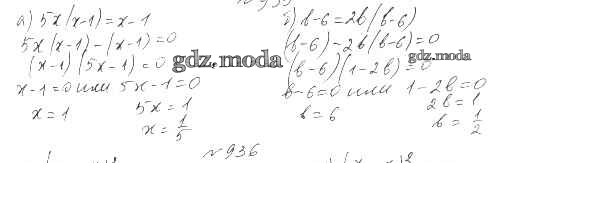 а) 5x(x-1)=x-1
5x(x-1)-(x-1)=0
(x-1)(5x-1)=0
x-1=0 или 5x-1=0
x=1 5x=1
x=1/5
gdz.moda
б) b-6=2b(b-6)
(b-6)-2b(b-6)=0
(b-6)(1-2b)=0
b-6=0 или 1-2b=0
b=6 2b=1
b=1/2
gdz.moda
№936